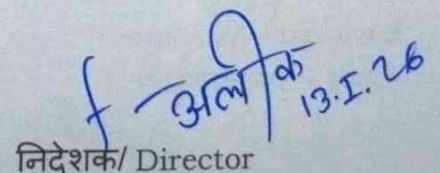 अलीक
13.I.26
निदेशक/ Director